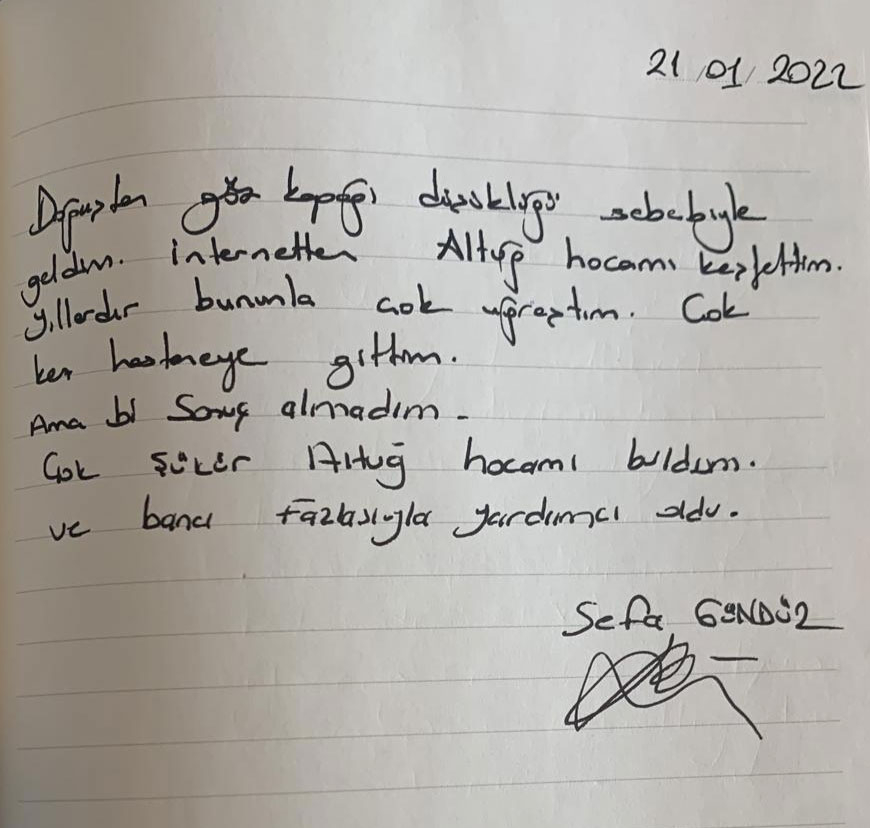 21/01/2022
Doğuştan göz kapağı düşüklüğü sebebiyle
geldim. internetten Altuğ hocamı keşfettim.
yıllardır bununla çok uğraştım. Çok
kez hastaneye gittim.
Ama bi Sonuç almadım.
Çok şükür Altuğ hocamı buldum.
ve bana fazlasıyla yardımcı oldu.
Sefa GÜNDÜZ